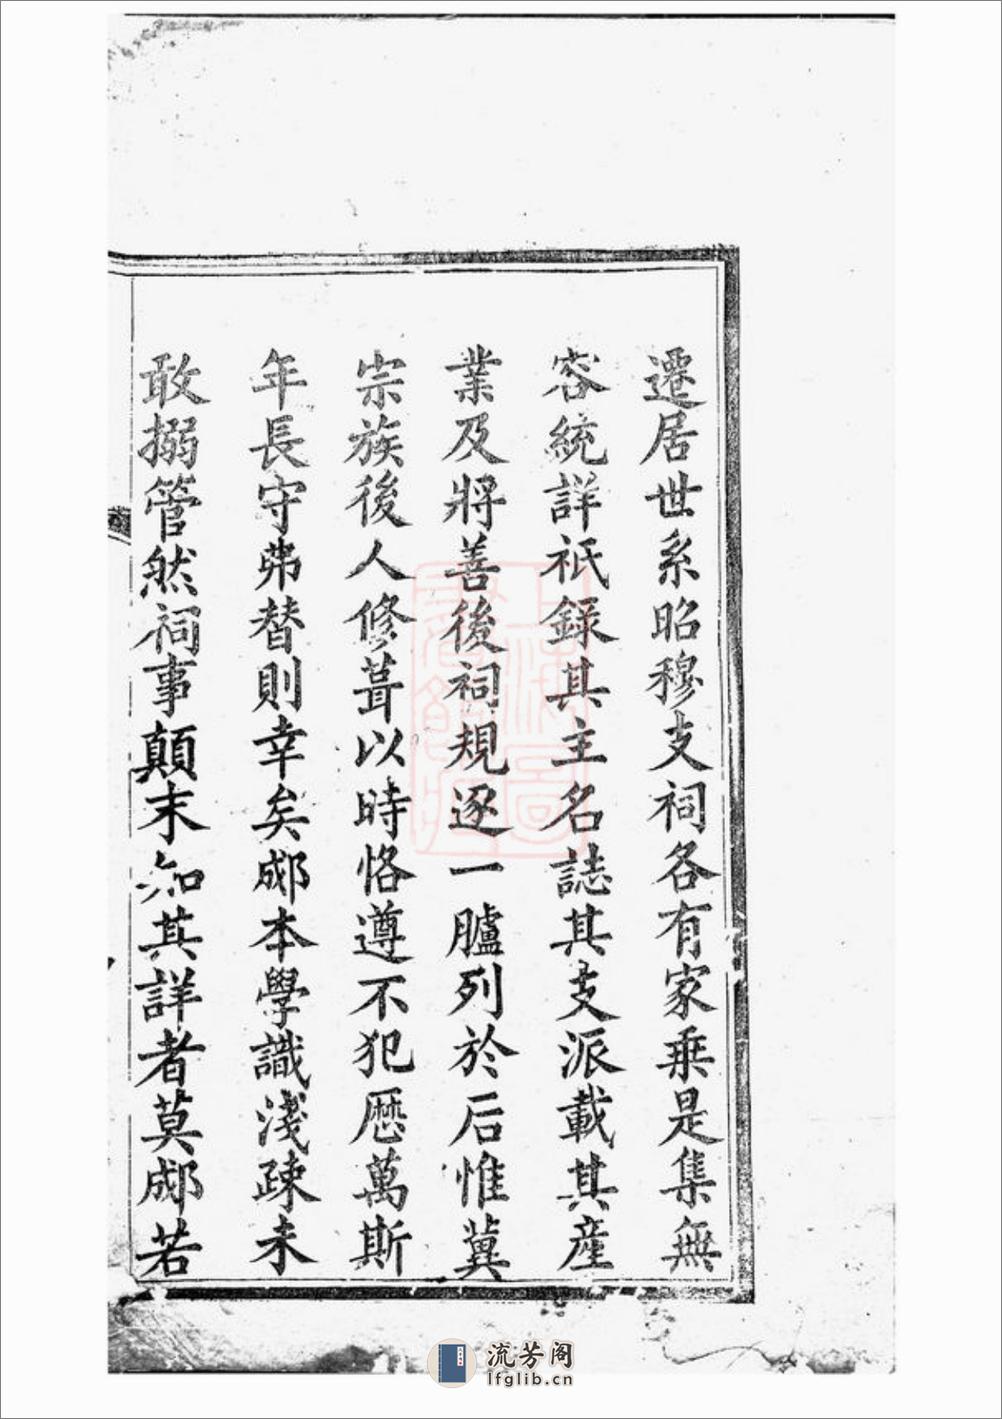 遷居世系昭穆支祠各有家乗是集無
容統詳祇錄其主名誌其支派載其産
業及將善後祠規逐一臚列於后惟冀
宗族後人修葺以時恪遵不犯厯萬斯
年長守弗替則幸矣郕本學識淺疎未
敢搦管然祠事顛末知其詳者莫郕若
上海圖書館藏
流芳阁
lfglib.cn